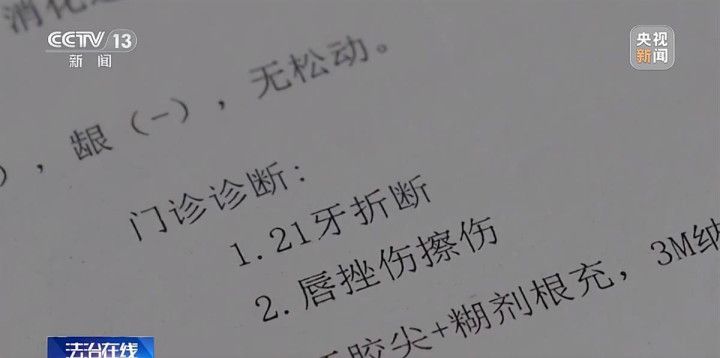 CCTV 13
新闻
央视
新闻
消化
，龈（-），无松动。
门诊诊断：
1.21牙折断
2.唇挫伤擦伤
胶尖+糊剂根充，3M纳
法治在线